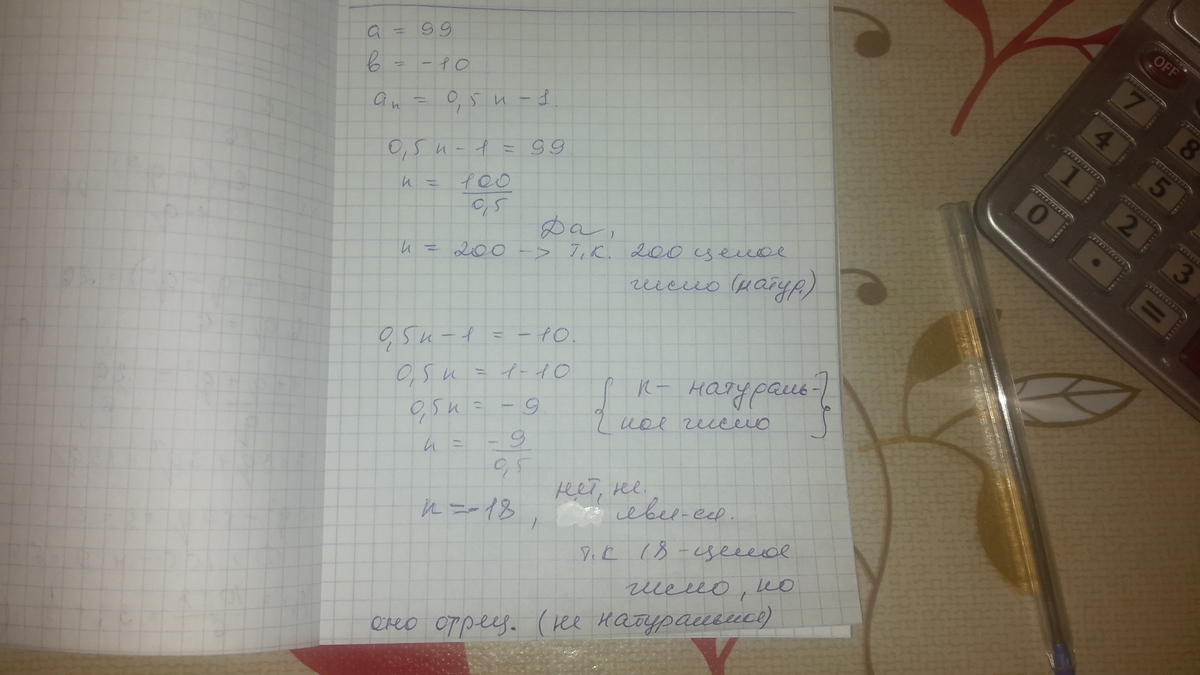 a = 99
в = -10
aₙ = 0,5 n - 1.
0,5 n - 1 = 99
n = 100
0,5
Да,
n = 200 -> т.к. 200 целое
число (натур.)
0,5n - 1 = -10.
0,5n = 1 - 10
0,5n = -9
n = -9
0,5
{ n - натураль-
ное число }
n = -18, нет, не.
яви-ся.
т.к 18 - целое
число, но
оно отриц. (не натуральное)
OFF
7
4
8
1
5
0
2
.
3
=